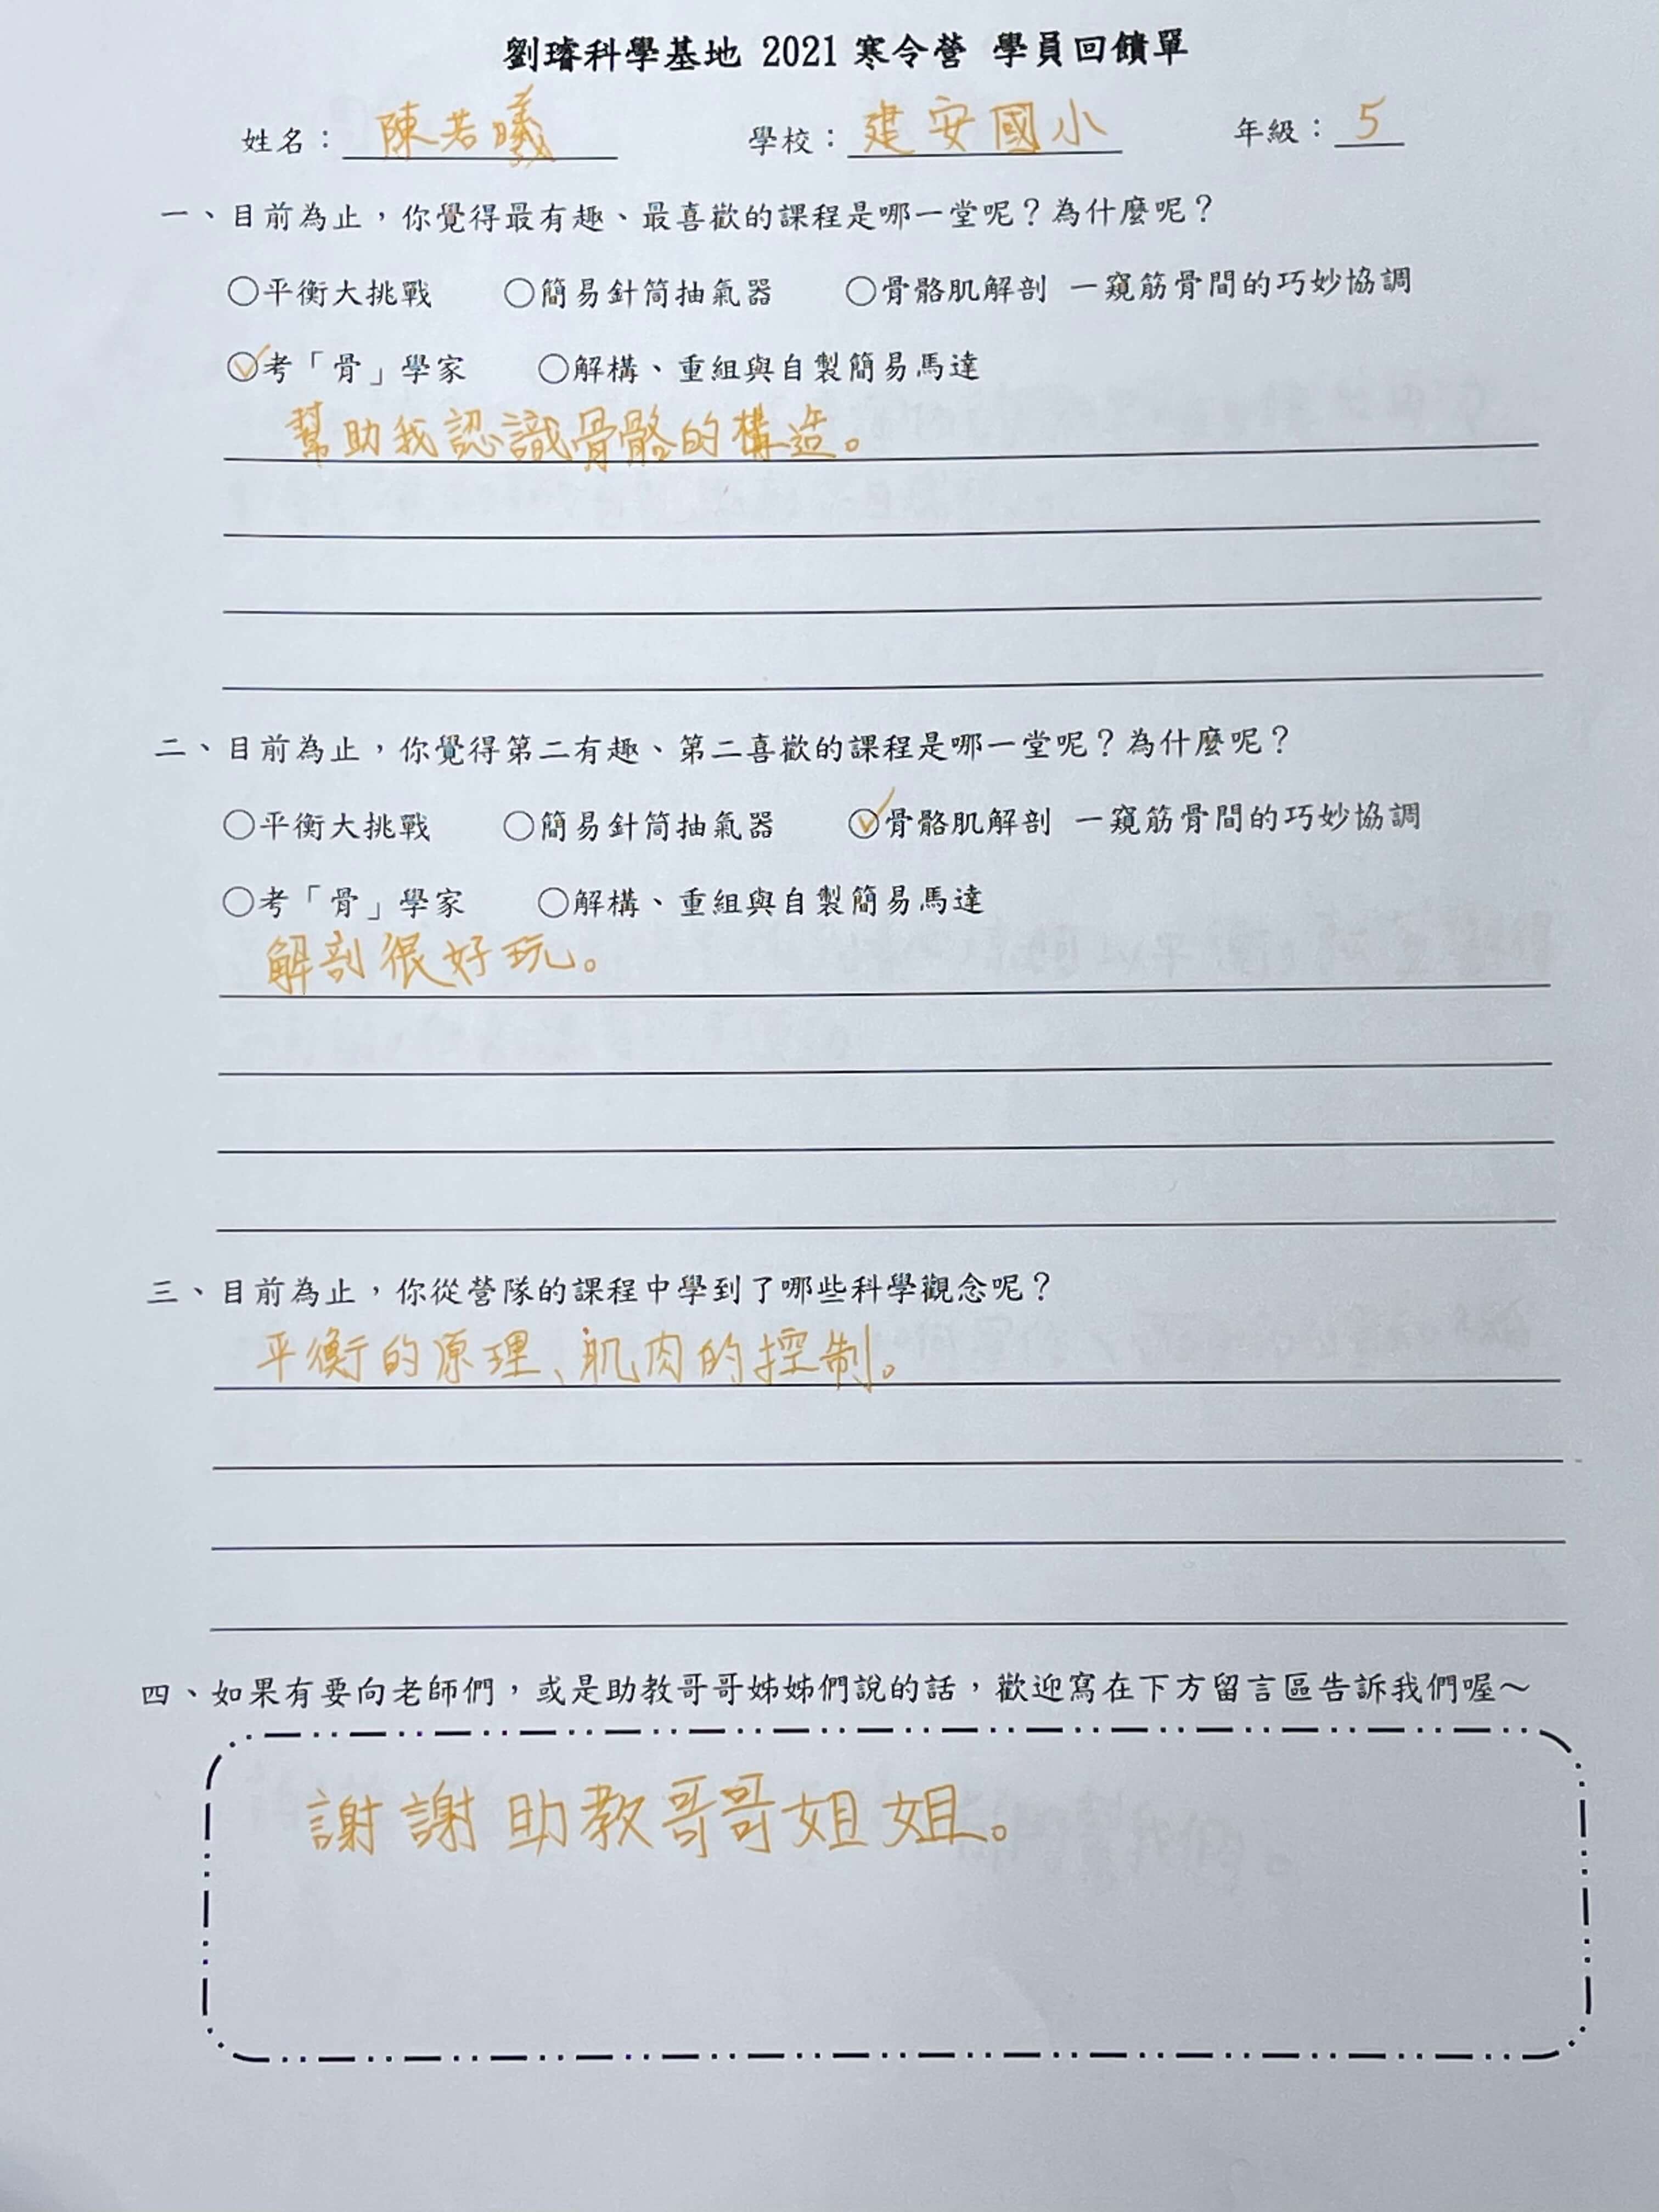 劉璿科學基地 2021 寒令營 學員回饋單
姓名：陳若曦 學校：建安國小 年級：5
一、目前為止，你覺得最有趣、最喜歡的課程是哪一堂呢？為什麼呢？
○平衡大挑戰 ○簡易針筒抽氣器 ○骨骼肌解剖 一窺筋骨間的巧妙協調
○✓考「骨」學家 ○解構、重組與自製簡易馬達
幫助我認識骨骼的構造。
二、目前為止，你覺得第二有趣、第二喜歡的課程是哪一堂呢？為什麼呢？
○平衡大挑戰 ○簡易針筒抽氣器 ○✓骨骼肌解剖 一窺筋骨間的巧妙協調
○考「骨」學家 ○解構、重組與自製簡易馬達
解剖很好玩。
三、目前為止，你從營隊的課程中學到了哪些科學觀念呢？
平衡的原理、肌肉的控制。
四、如果有要向老師們，或是助教哥哥姊姊們說的話，歡迎寫在下方留言區告訴我們喔～
謝謝助教哥哥姐姐。